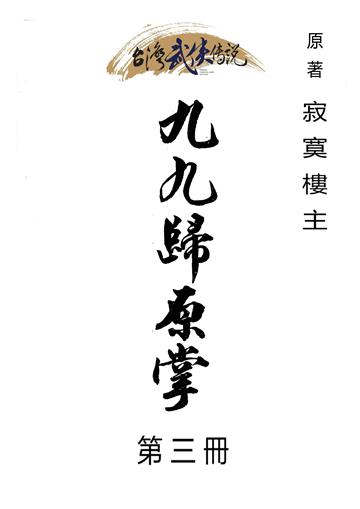 台灣武俠傳説
原著 寂寞樓主
九九歸原掌
第三冊